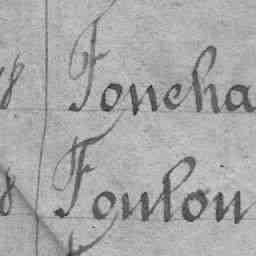 8 Foucha
8 Foulou